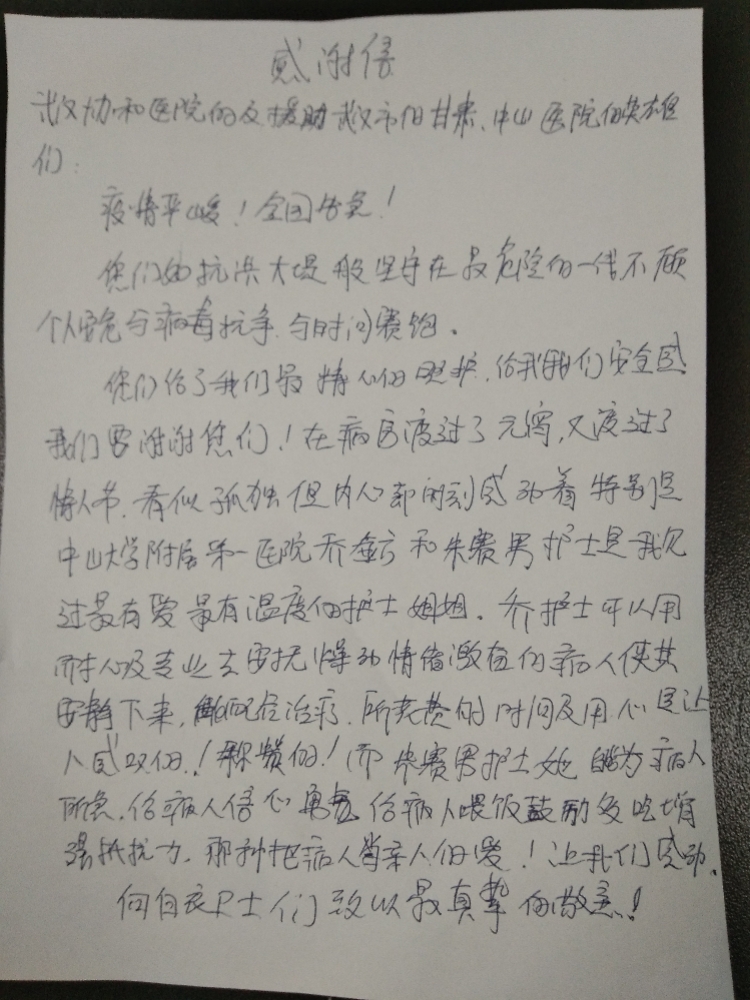 感谢信
武汉协和医院的及援助武汉市的甘肃、中山医院的英雄
们:
疫情严峻!全国告急!
您们如抗洪大堤般坚守在最危险的一线不顾
个人安危与病毒抗争、与时间赛跑。
您们给了我们最精心的照护,给我我们安全感
我们要谢谢您们!在病房渡过了元宵,又渡过了
情人节,看似孤独但内心却时刻感动着特别是
中山大学附属第一医院乔 和朱赛男护士是我见
过最有爱最有温度的护士姐姐。乔护士可以用
耐心及专业去安抚燥动情绪激动的病人使其
安静下来,能配合治疗,所花费的时间及用心是让
人感叹的!称赞的!而朱赛男护士她 为病人
所急,给病人信心 给病人喂饭鼓励多吃增
强抵抗力,那种把病人当亲人的爱!让我们感动。
向白衣卫士们致以最真挚的敬意!